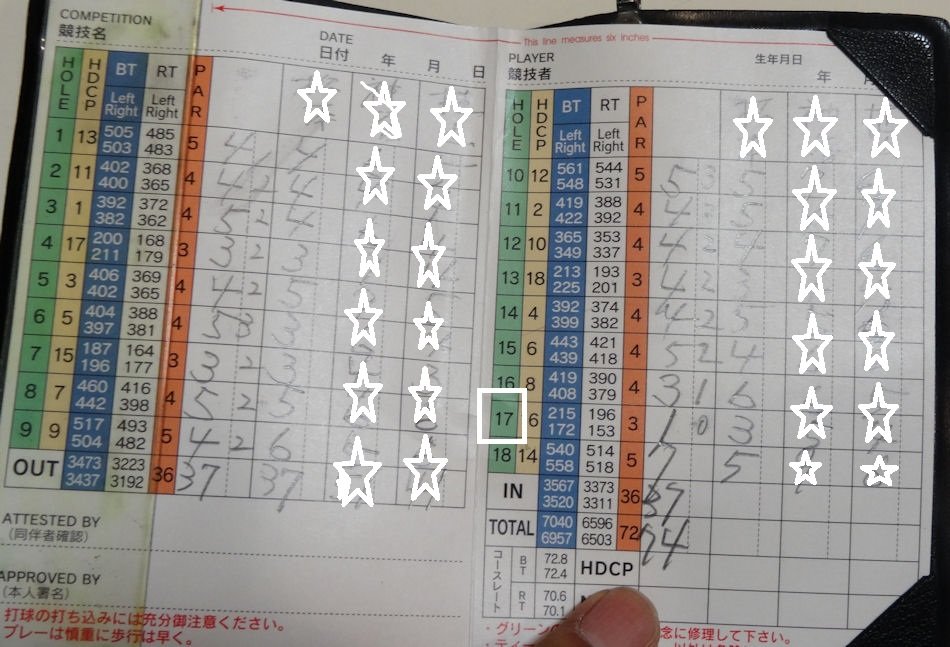 COMPETITION
競技名
DATE
日付 年 月 日
HOLE HDCP BT RT PAR
Left Right Left Right
1 13 505 503 485 483 5 4 4
2 11 402 400 368 365 4 4 2 4
3 1 392 382 372 362 4 5 2 4
4 17 200 211 168 179 3 3 2 3
5 3 406 402 369 365 4 4 2 5
6 5 404 397 388 381 4 5 3
7 15 187 196 164 177 3 3 2 3
8 7 460 442 416 398 4 5 2 5
9 9 517 504 493 482 5 4 2 6
OUT 3473 3437 3223 3192 36 37 37
ATTESTED BY
(同伴者確認)
APPROVED BY
(本人署名)
打球の打ち込みには充分御注意ください。
プレーは慎重に歩行は早く。
This line measures six inches
PLAYER
競技者
生年月日
年
HOLE HDCP BT RT PAR
Left Right Left Right
10 12 561 548 544 531 5 5 3 5
11 2 419 422 388 392 4 4 5
12 10 365 349 353 337 4 4 2 4
13 18 213 225 193 201 3 4 2 3
14 4 392 399 374 382 4 4 2 5
15 6 443 439 421 418 4 5 2 4
16 8 419 408 390 379 4 3 1 6
17 6 215 172 196 153 3 1 0 3
18 14 540 558 514 518 5 7 5
IN 3567 3520 3373 3311 36 37
TOTAL 7040 6957 6596 6503 72 74
コースレート BT 72.8 72.4 HDCP
RT 70.6 70.1
・グリーン
念に修理して下さい。